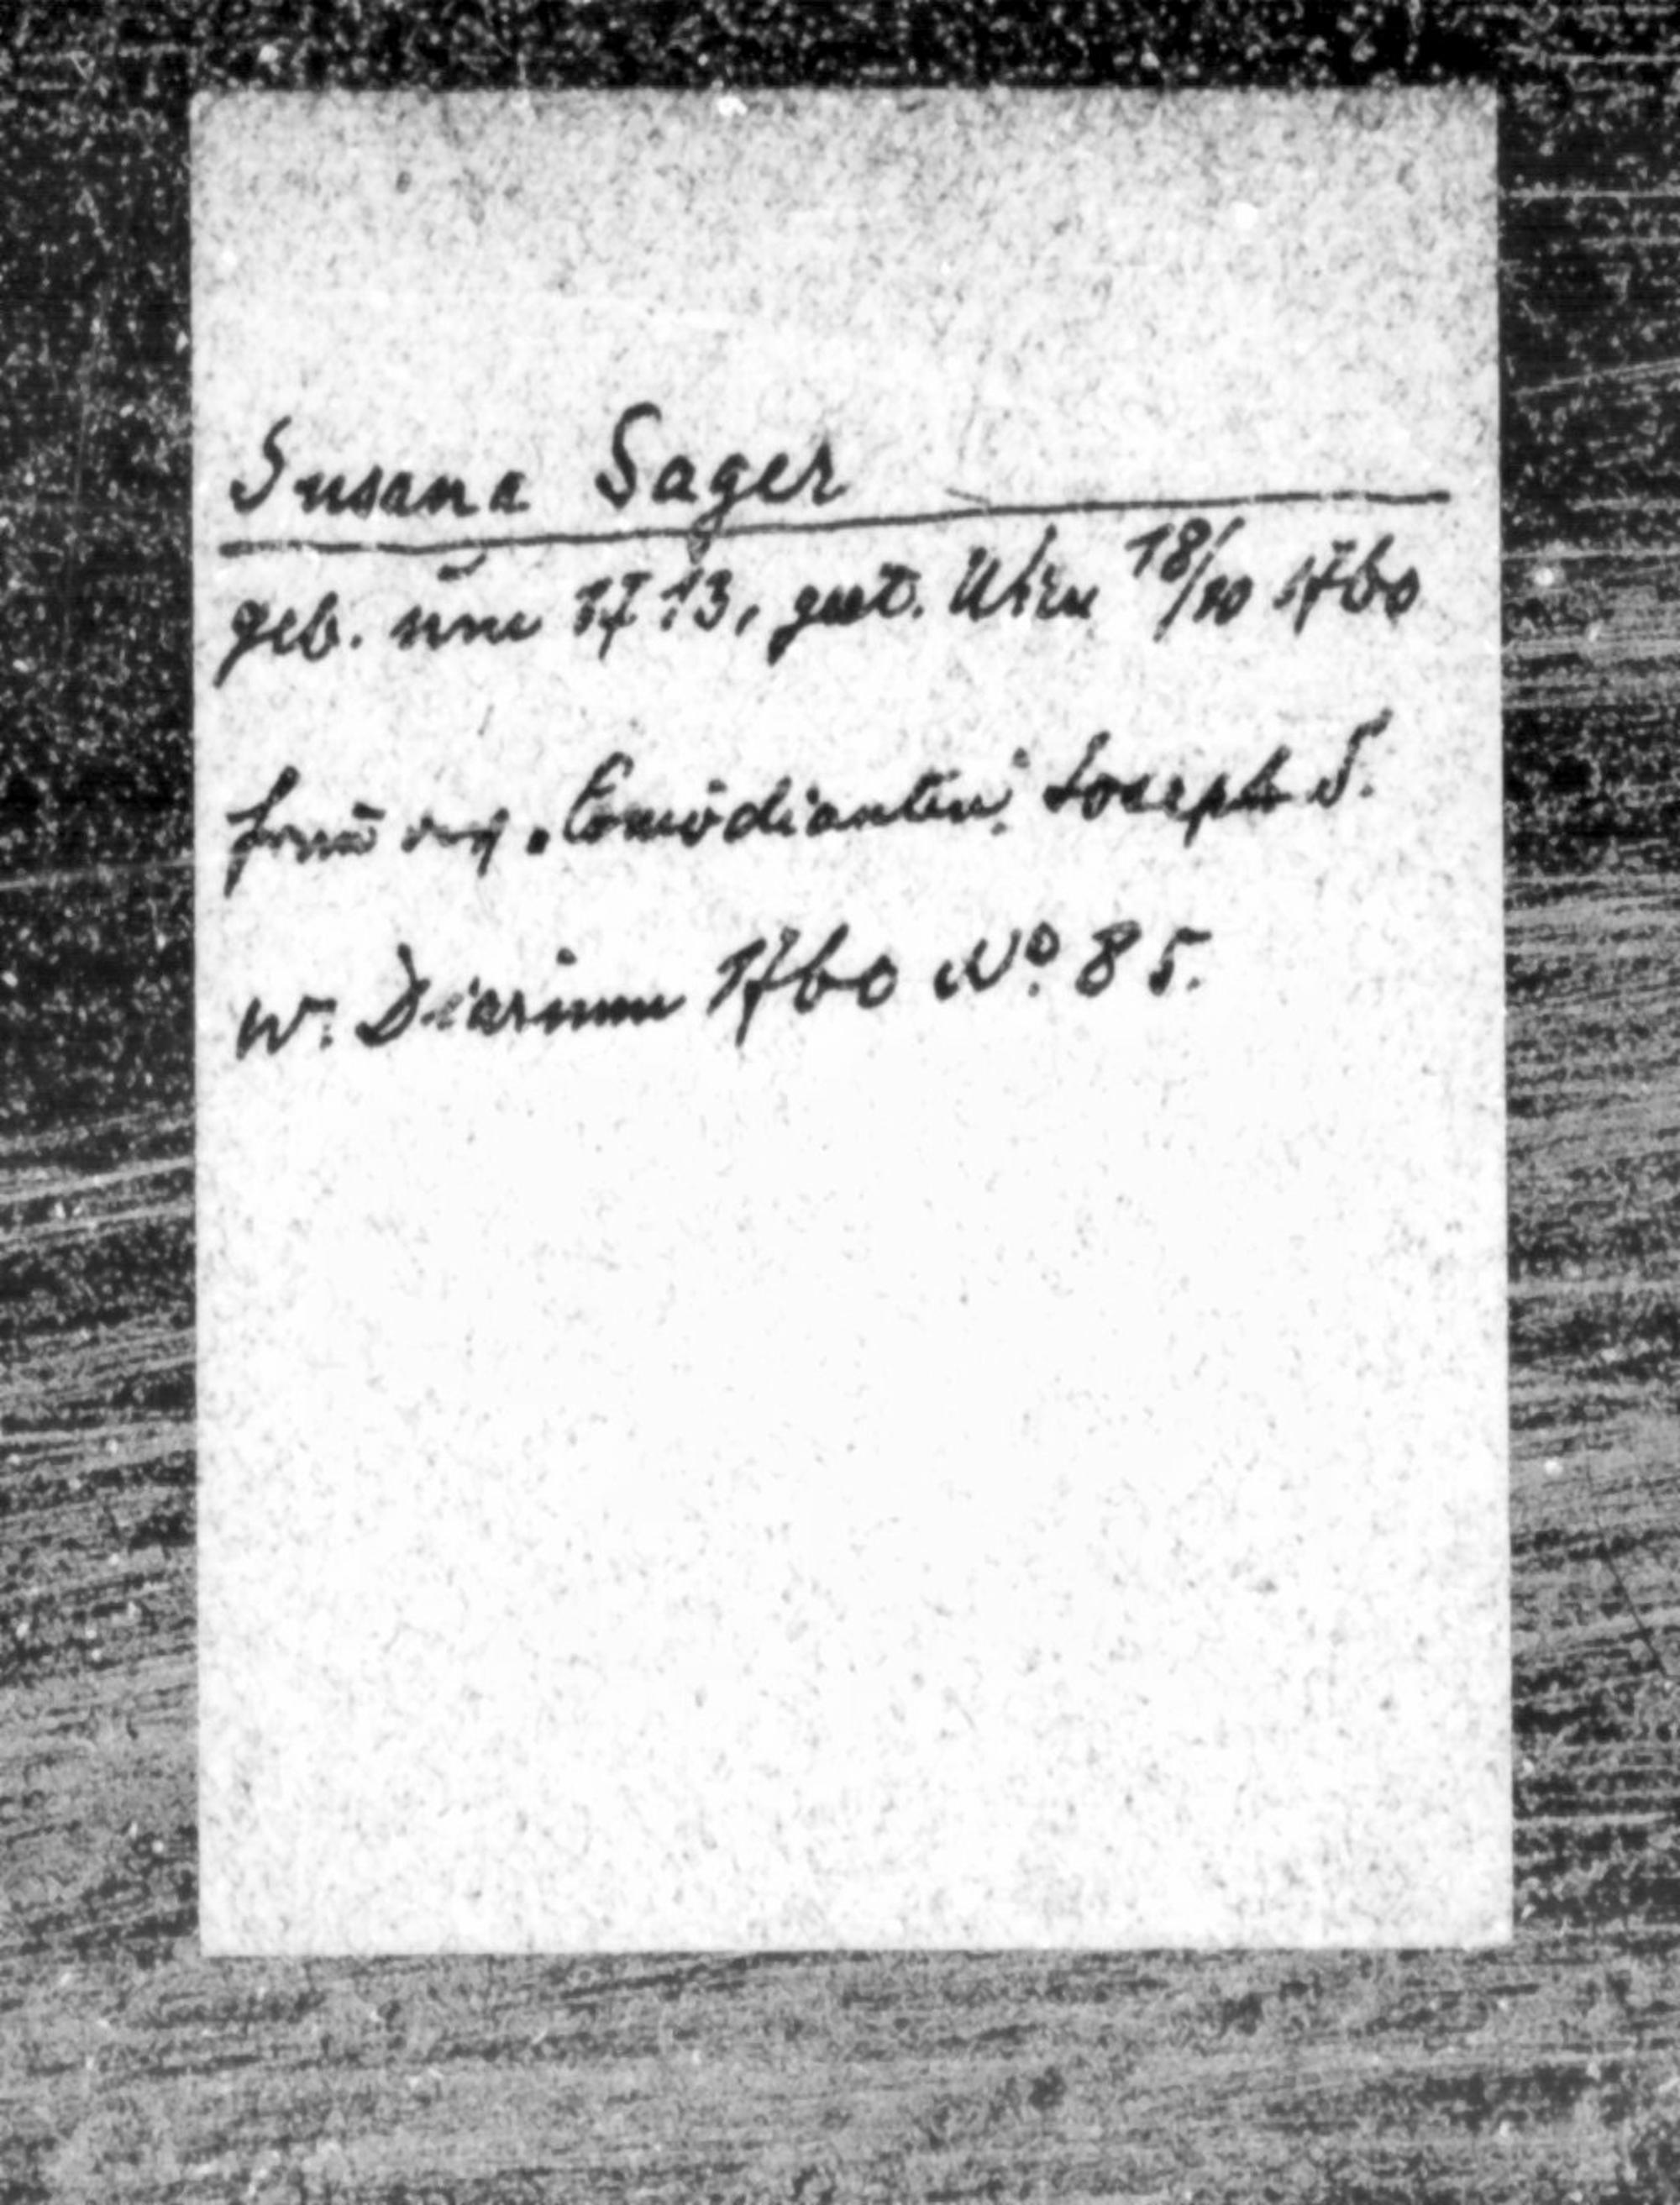 Susana Sager
geb. um 1713, gest. Wien 18/10 1760
Frau des „Comödianten" Joseph S.
W. Diarium 1760 No. 85.